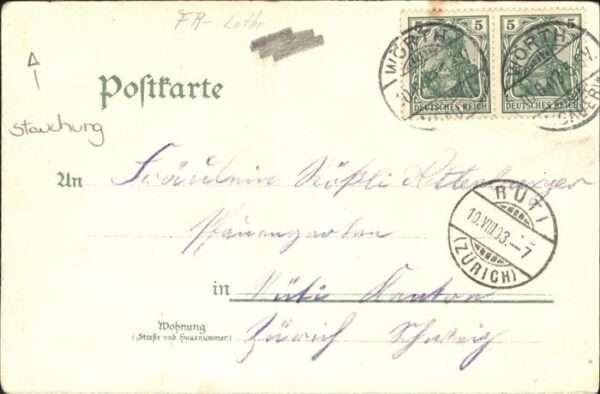 FR- Lothr
5 5
WÖRTH WÖRTH
DEUTSCHES REICH DEUTSCHES REICH
Postkarte
Stauchung
An Fräulein Rösli
RÜTI
10.VIII.03.-7
(ZÜRICH)
in Rüti Kanton
Wohnung
(Straße und Hausnummer)
Zürich Schweiz